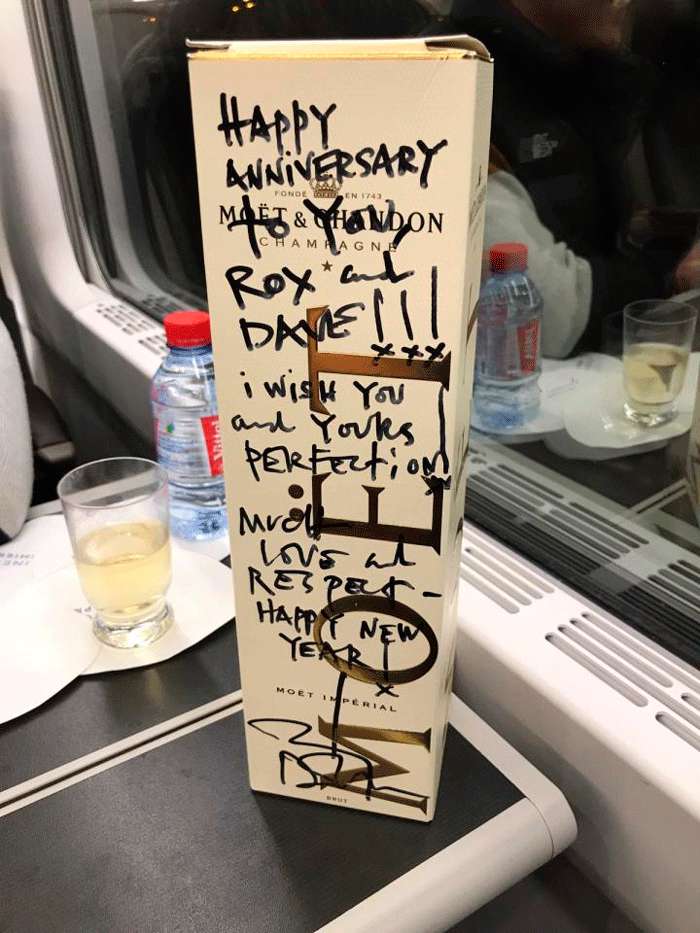 HAPPY
ANNIVERSARY
FONDÉ EN 1743
MOËT & CHANDON
to YOU
CHAMPAGNE
ROX and
DAVE!!!
xxx
i WISH YOU
and YOURS
PERFECTION!
x
MUCH
LOVE and
RESPECT -
HAPPY NEW
YEAR!
x
MOËT IMPÉRIAL
MOËT
BRUT
Vittel